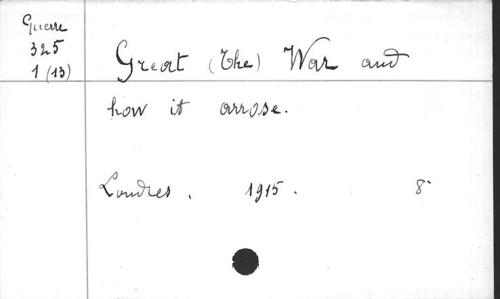 Guerre
325
1 (13)
Great (The) War and
how it arrose.
Londres. 1915. 8°